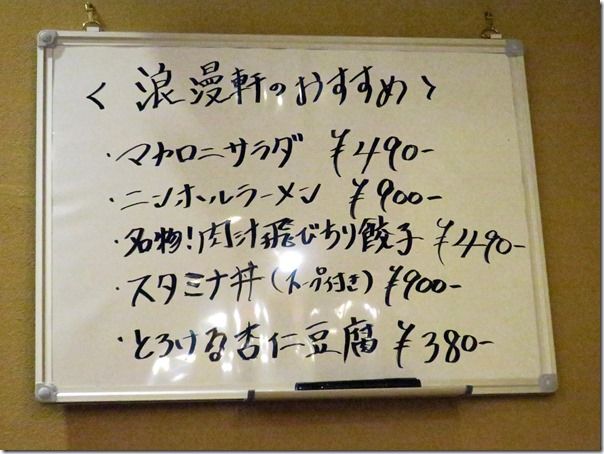 ＜浪漫軒のおすすめ＞
・マカロニサラダ ¥490-
・ニンホルラーメン ¥900-
・名物!肉汁飛びちり餃子 ¥490-
・スタミナ丼(スープ付き) ¥900-
・とろける杏仁豆腐 ¥380-